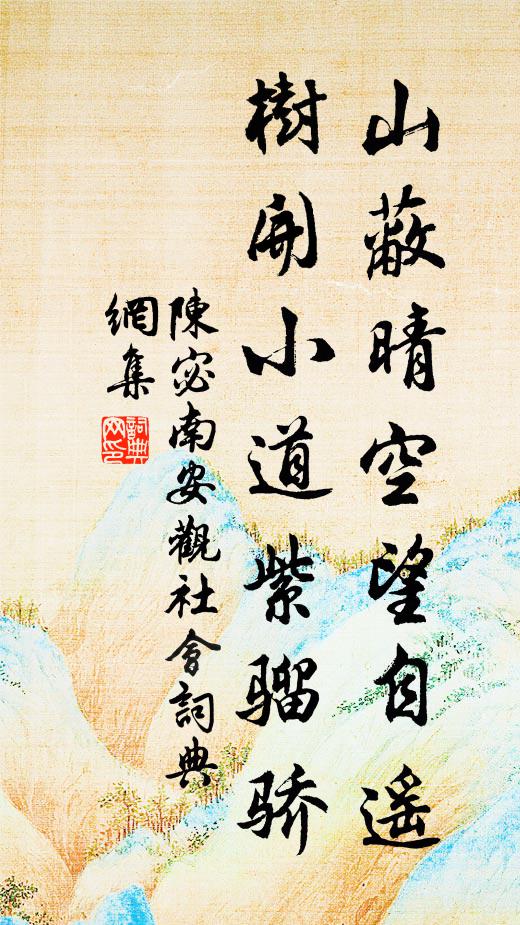 山蔽晴空望自遥
樹開小道紫骝骄
陳宓南安觀社會詞典
網集
詞典
网印